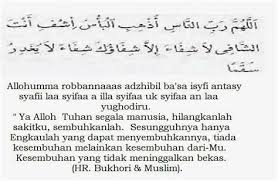 اَللّٰهُمَّ رَبَّ النَّاسِ أَذْهِبِ الْبَأْسَ اِشْفِ أَنْتَ
الشَّافِي لَا شِفَاءَ إِلَّا شِفَاؤُكَ شِفَاءً لَا يُغَادِرُ
سَقَمًا
Allohumma robbannaaas adzhibil ba'sa isyfi antasy
syafii laa syifaa a illa syifaa uk syifaa an laa
yughodiru.
" Ya Alloh Tuhan segala manusia, hilangkanlah
sakitku, sembuhkanlah. Sesungguhnya hanya
Engkaulah yang dapat menyembuhkannya, tiada
kesembuhan melainkan kesembuhan dari-Mu.
Kesembuhan yang tidak meninggalkan bekas.
(HR. Bukhori & Muslim).